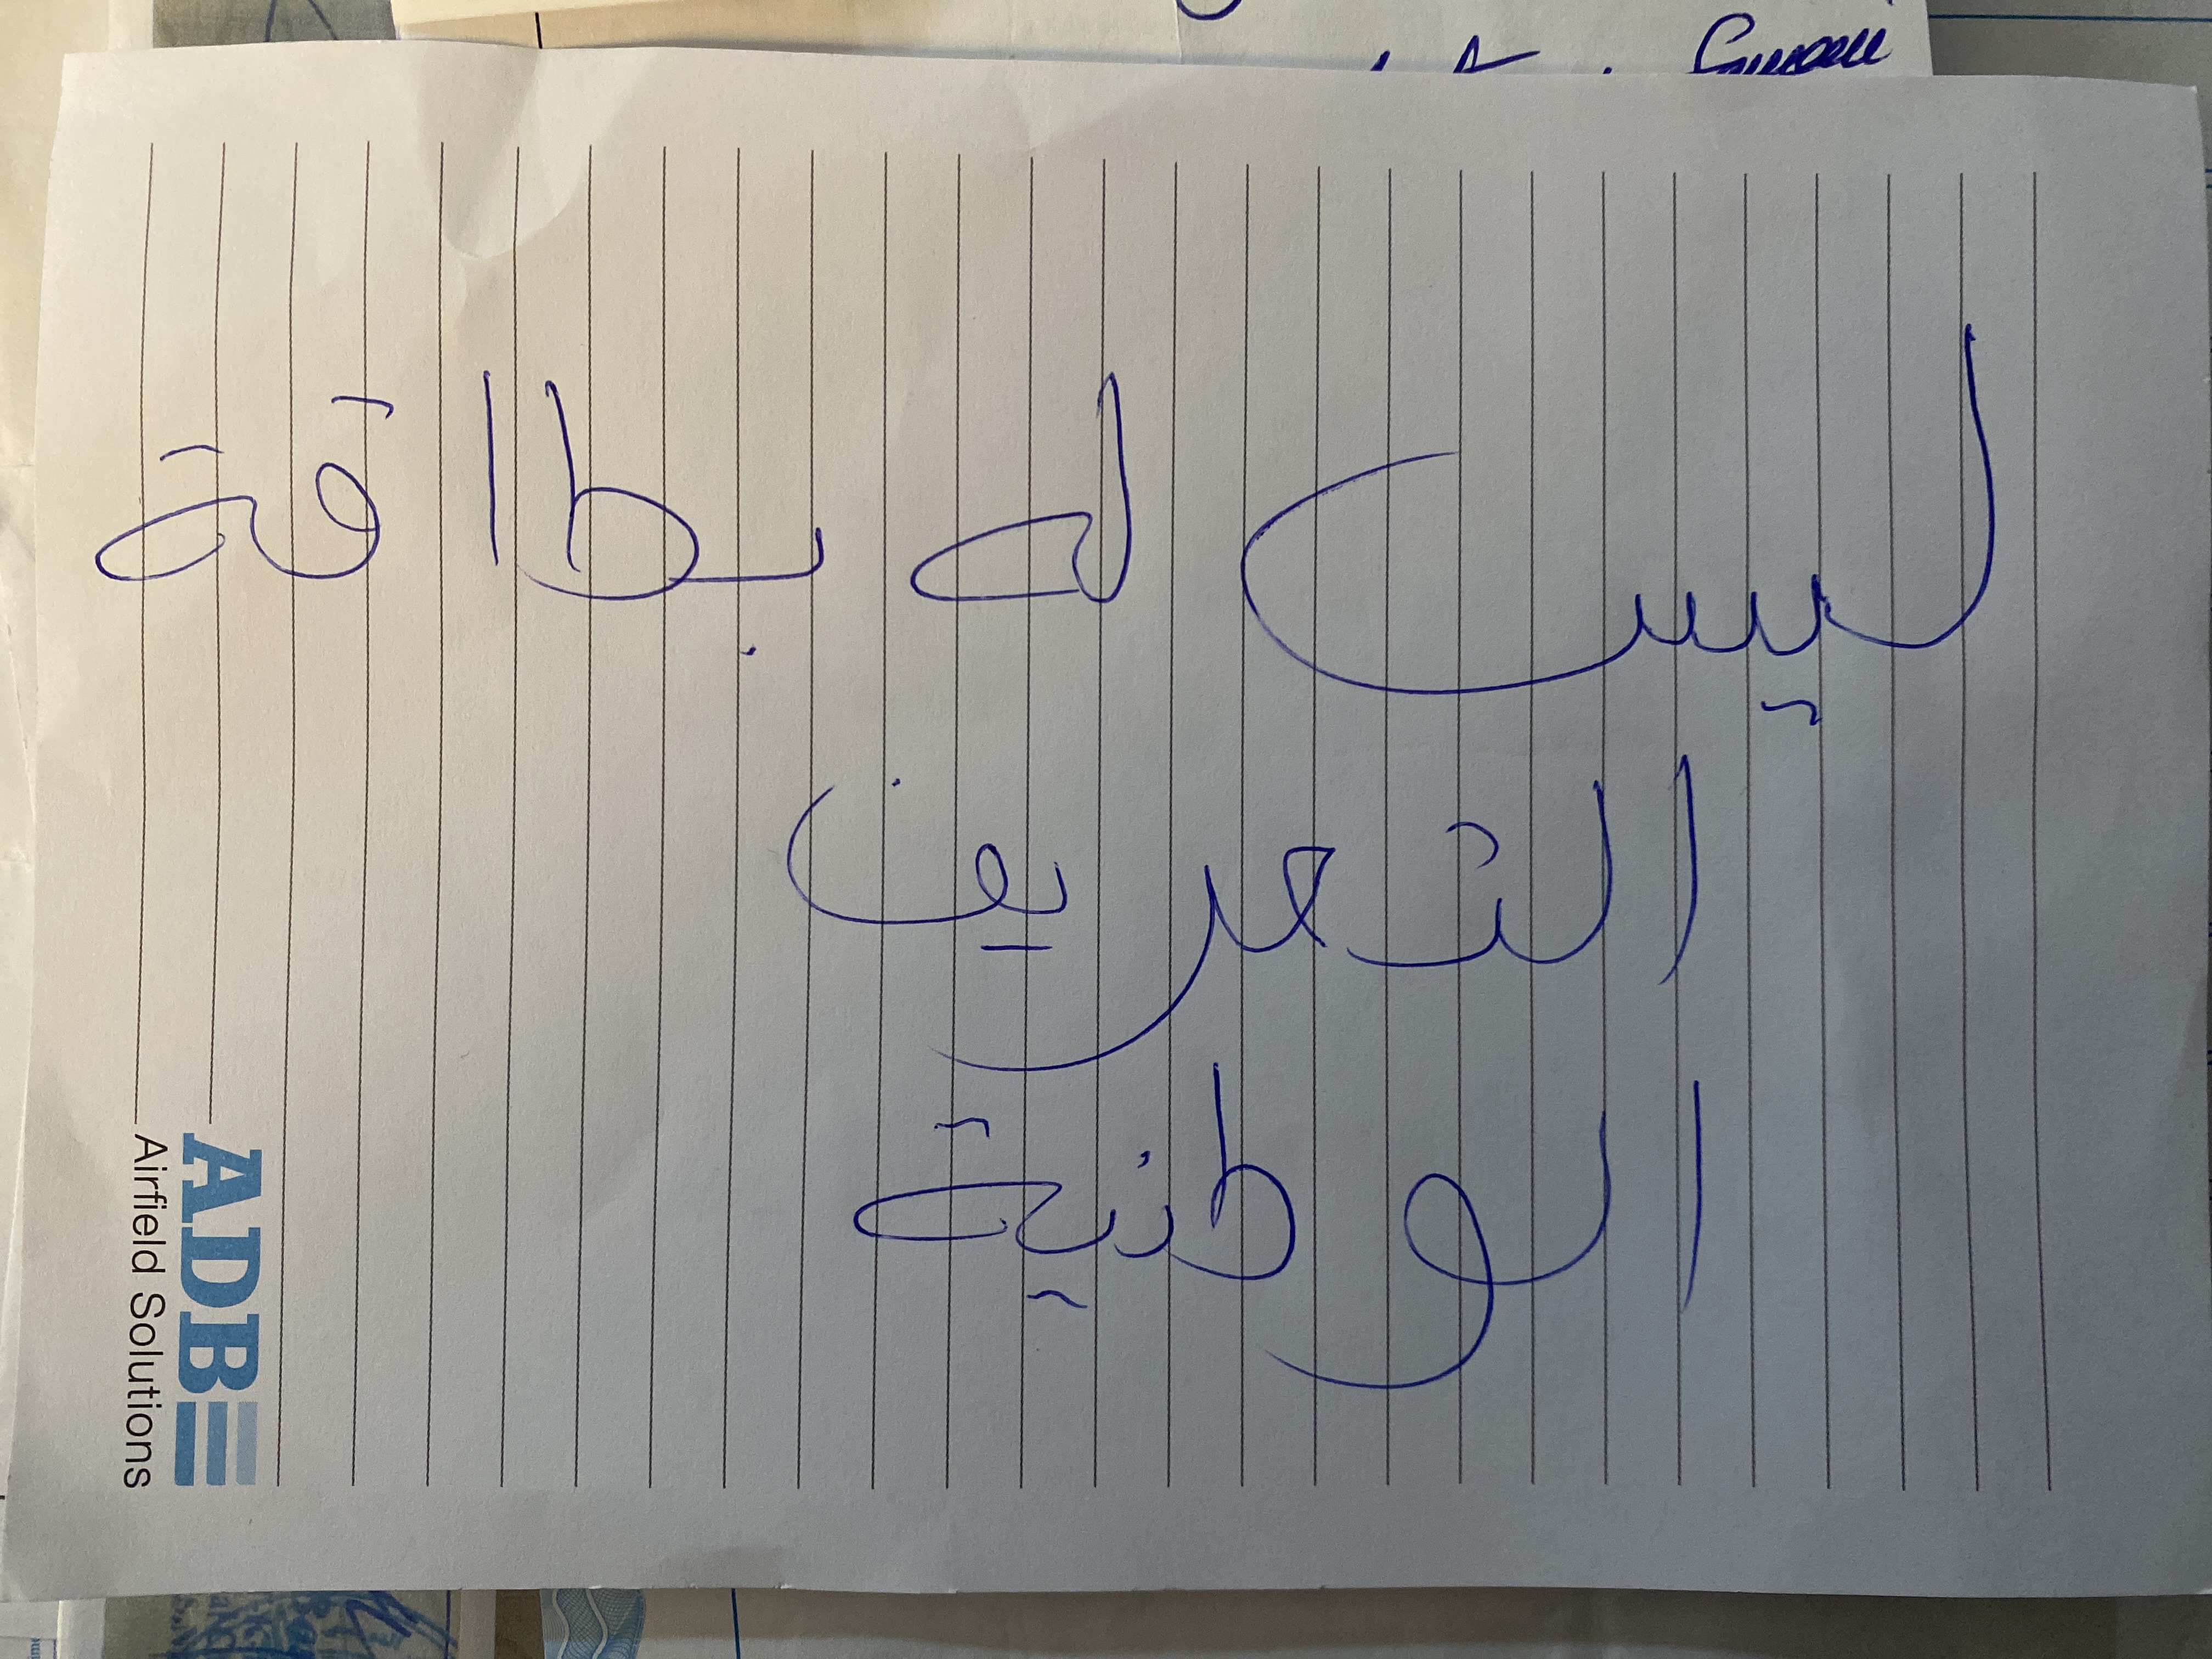 ليس له بطاقة
التعريف
الوطنية
ADB
Airfield Solutions